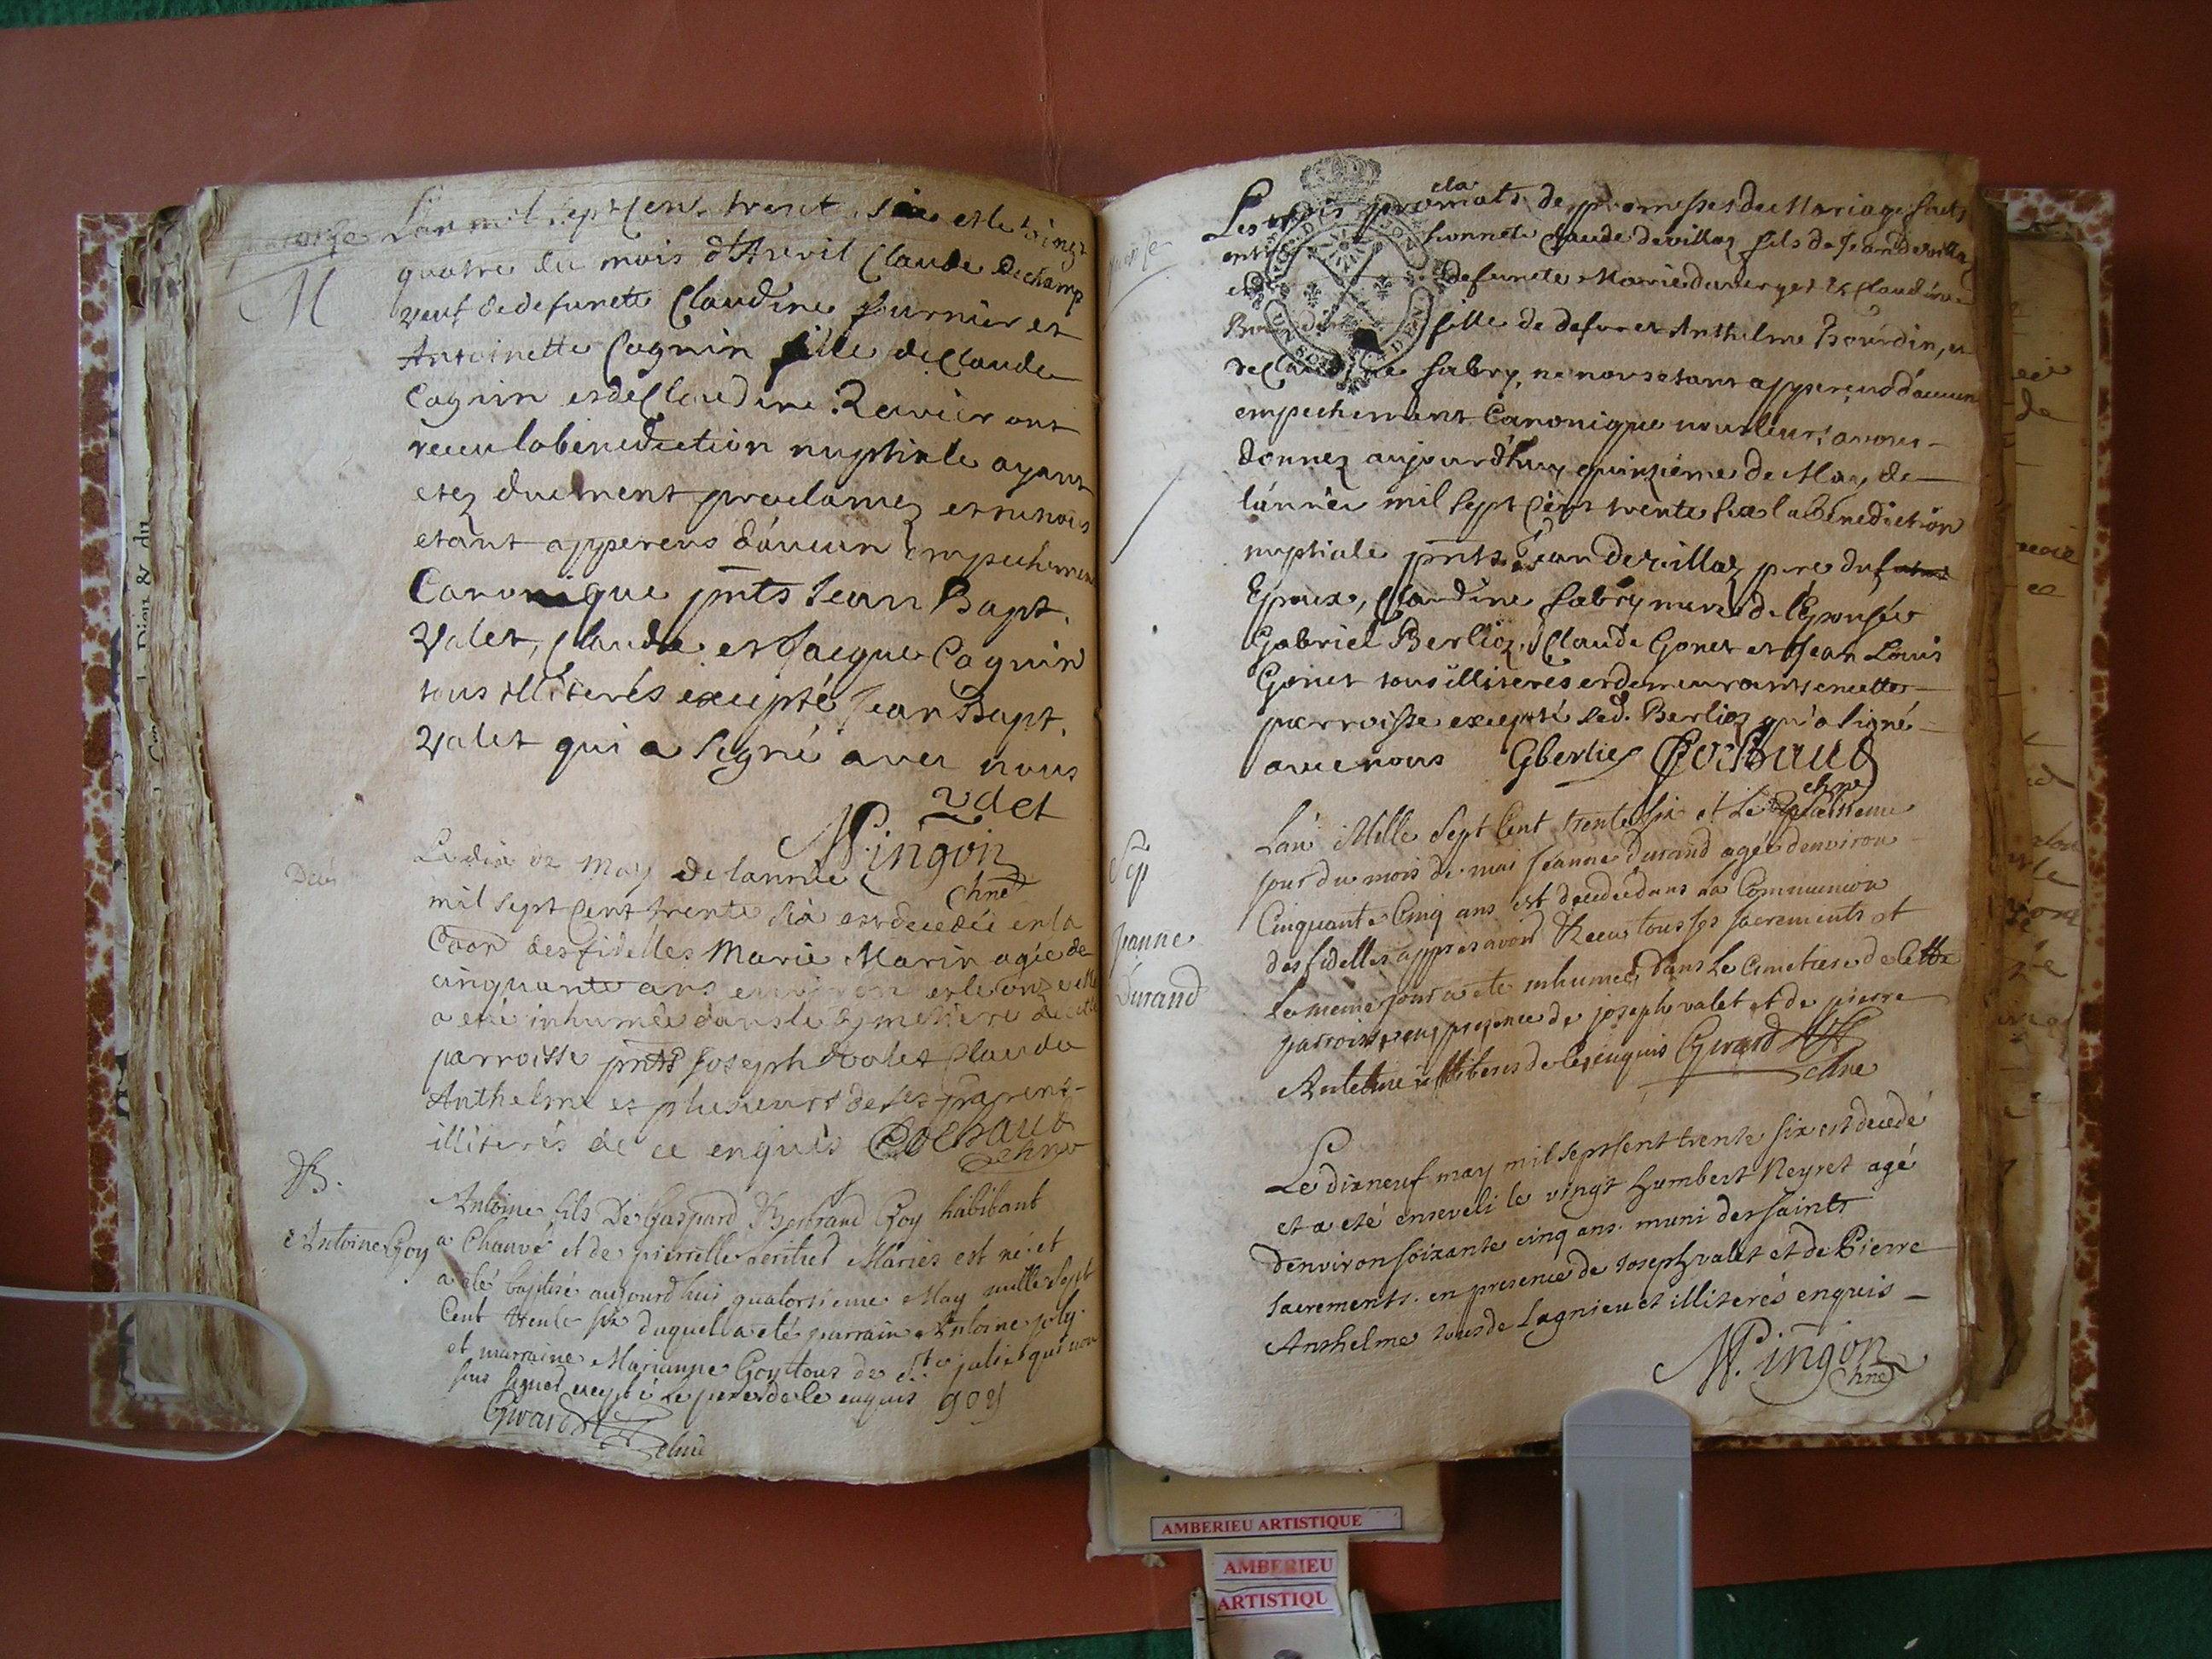 mariage
M
L'an mil sept cent trent six et le vingt
quatre du mois d'Avril Claude Dechamp
veuf de defunette Claudine fournier et
Antoinette Cagnin fille de Claude
Cagnin et de Claudine Ravier ont
receu la benediction nuptiale ayant
etez duement proclamez et ne nous
etant apperceus d'aucun empechement
Canonique pnts Jean Bapt.
Valet, Claude et Jacque Cagnin
tous illiterés excepté Jean Bapt.
Valet qui a signé avec nous
Valet
Mingon
chne
Le dix de May de lannée
mil sept cent trente six est decedée en la
Coon des fidelles Marie Marin agée de
cinquante ans environ et le onze elle
a eté inhumée dans le cymetiere de cette
parroisse pnts Joseph Valet Claude
Anthelme et plusieurs de ses parent
illiterés de ce enquis Cochaud
chne
B.
Antoine Goy
Antoine fils De Gaspard Bertrand Goy habitant
a Chauvé et de pierrette Mariés est né et
a eté baptisé aujourdhui quatorsieme May mille sept
Cent trente six duquel a eté parrain Antoine joly
et marraine Marianne Goy tous de Ste julie qui non
sus signer excepté le pere de le enquis goy
Girard
chne
mariage
Les trois proclamats de promesses de Mariage faits
entre honnete Claude devillaz fils de Jean devillaz
et defunete Marie duverger et Claudine
Bourdin fille de defunct Anthelme Bourdin, et
de Claudine fabry, ne nous etant apperceus d'aucun
empechement Canonique nous leurs avons
donnez aujourd'huy quinzieme de May de
lannée mil sept cent trente six la benediction
nuptiale pnts Jean devillaz pere du
Epoux, Claudine fabry mere de l'Epousée
Gabriel Berlioz, Claude Gonet et Jean Louis
Gonet tous illiterés et demeurants en cette
parroisse excepté led. Berlioz qui a signé
avec nous Gberlie Cochaud
chne
Sep
Jeanne
Durand
L'an Mille Sept Cent trente six et le
jour du mois de mai Jeanne Durand agée denviron
Cinquante Cinq ans est decedée dans la Communion
des fidelles appres avoir Receu tous ses sacrements et
le meme jour a ete inhumée dans le Cimetiere de Cette
parroisse en presence de joseph valet et de pierre
Antelme illiteres de le enquis Girard
chne
Le dixneuf may mil sept sent trente six est decedé
et a eté enseveli le vingt humbert Neyret agé
denviron soixante cinq ans. muni des saints
sacrements. en presence de Joseph valet et de Pierre
Anthelme tous de Lagnieu et illiterés enquis
Mingon
chne
AMBERIEU ARTISTIQUE
AMBERIEU
ARTISTIQU